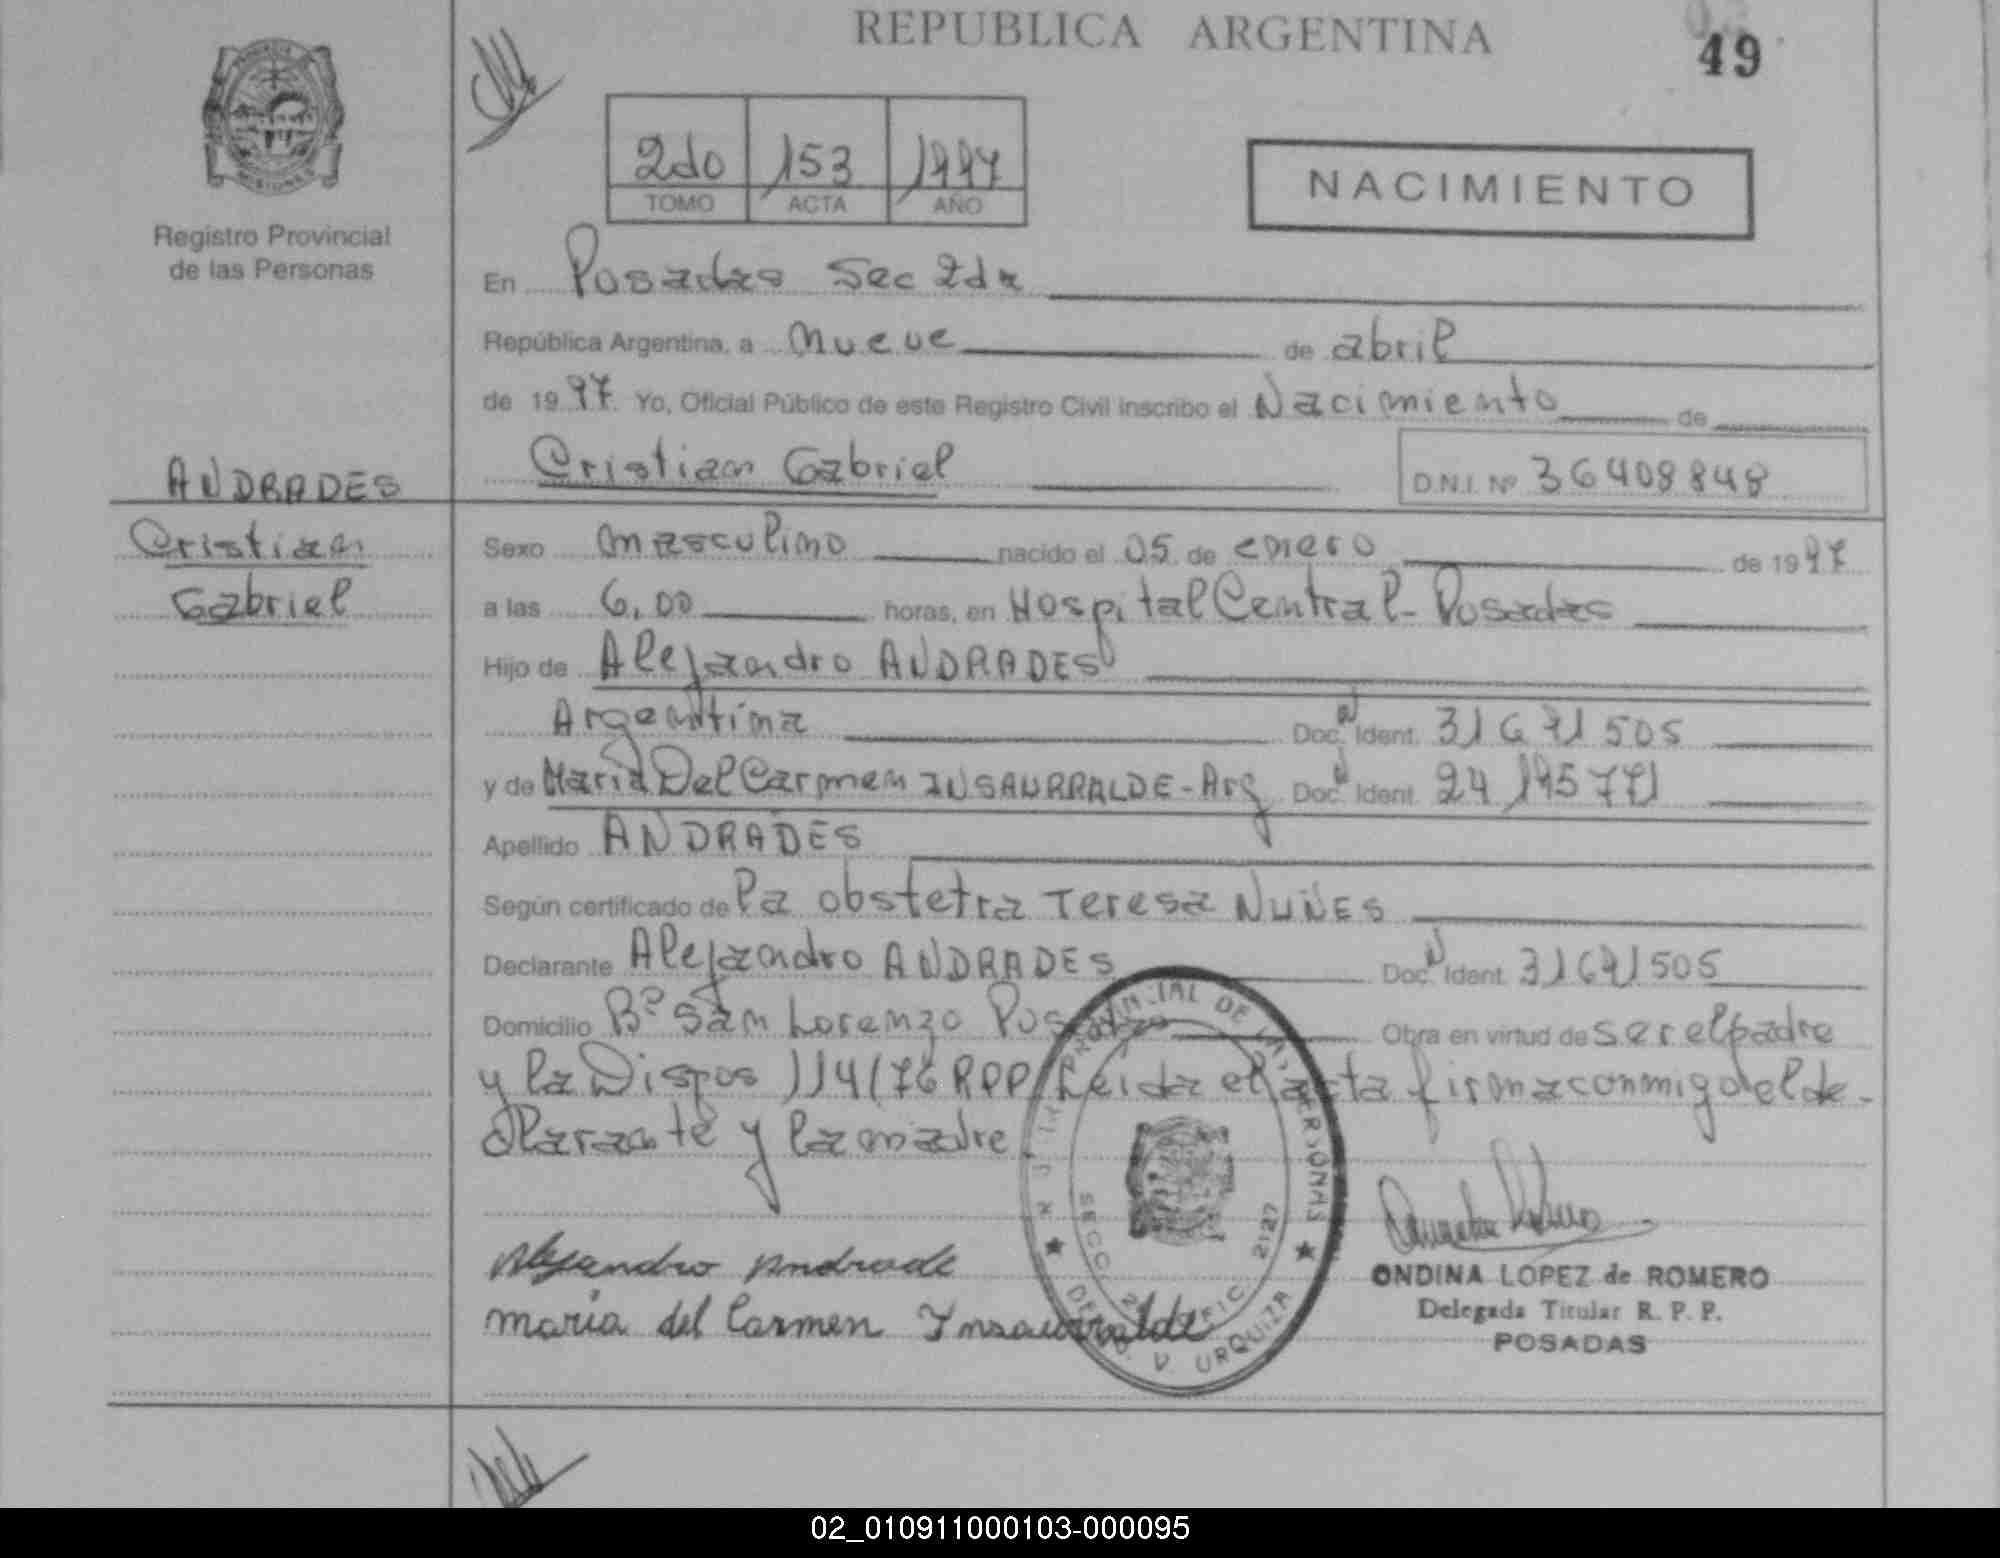 REPUBLICA ARGENTINA
49
2do 153 1997
TOMO ACTA AÑO
NACIMIENTO
MISIONES
Registro Provincial
de las Personas
En Posadas Sec 2da
República Argentina, a nueve de abril
de 19 97. Yo, Oficial Público de este Registro Civil inscribo el Nacimiento de
Cristian Gabriel D.N.I. Nº 36408848
ANDRADES
Cristian
Gabriel
Sexo masculino nacido el 05 de enero de 19 97
a las 6,00 horas, en Hospital Central - Posadas
Hijo de Alejandro ANDRADES
Argentina Doc. Ident. 31671505
y de María Del Carmen INSAURRALDE - Arg Doc. Ident. 24195771
Apellido ANDRADES
Según certificado de la obstetra Teresa NUÑES
Declarante Alejandro ANDRADES Doc. Ident. 31671505
Domicilio Bº San Lorenzo Posadas Obra en virtud de ser el padre
y la Dispos 114/76 RPP. Leida el acta firma conmigo el de-
clarante y la madre
Alejandro Andrade
maria del Carmen Insaurralde
PROVINCIAL DE LAS PERSONAS
SECC. 2
2127
DEP. J. V. URQUIZA
ONDINA LOPEZ de ROMERO
Delegada Titular R. P. P.
POSADAS
02_010911000103-000095